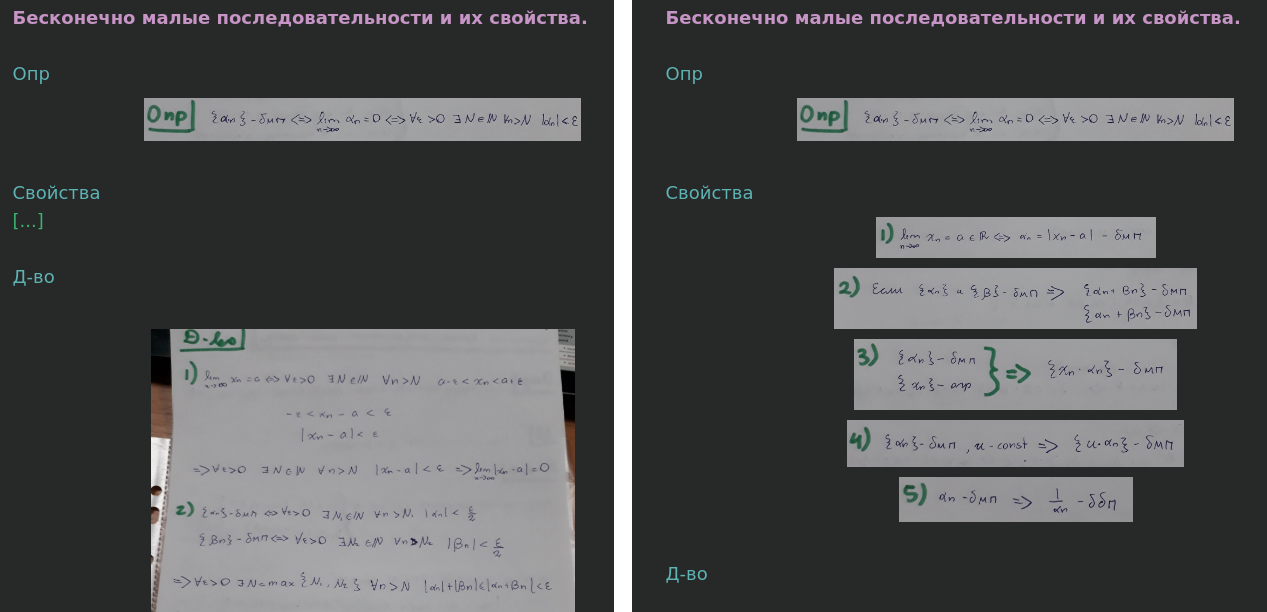 Бесконечно малые последовательности и их свойства.
Опр
Опр {αn} - δмп <=> lim n→∞ αn = 0 <=> ∀ε > 0 ∃N∈ℕ ∀n>N |αn| < ε
Свойства
[...]
Д-во
Д-во
1) lim n→∞ xn = a <=> ∀ε>0 ∃N∈ℕ ∀n>N a-ε < xn < a+ε
-ε < xn - a < ε
|xn - a| < ε
=> ∀ε>0 ∃N∈ℕ ∀n>N |xn-a| < ε => lim n→∞ |xn-a| = 0
2) {αn} - δмп <=> ∀ε>0 ∃N₁∈ℕ ∀n>N₁ |αn| < ε/2
{βn} - δмп <=> ∀ε>0 ∃N₂∈ℕ ∀n>N₂ |βn| < ε/2
=> ∀ε>0 ∃N=max{N₁, N₂} ∀n>N |αn|+|βn|≤|αn+βn|<ε
Бесконечно малые последовательности и их свойства.
Опр
Опр {αn} - δмп <=> lim n→∞ αn = 0 <=> ∀ε > 0 ∃N∈ℕ ∀n>N |αn| < ε
Свойства
1) lim n→∞ xn = a ∈ ℝ <=> αn = |xn - a| - δмп
2) Если {αn} и {β} - δмп => {αn + βn} - δмп
{αn + βn} - δмп
3) {αn} - δмп
{xn} - опр } => {xn · αn} - δмп
4) {αn} - δмп , и - const => {и·αn} - δмп
5) αn - δмп => 1/αn - δδп
Д-во